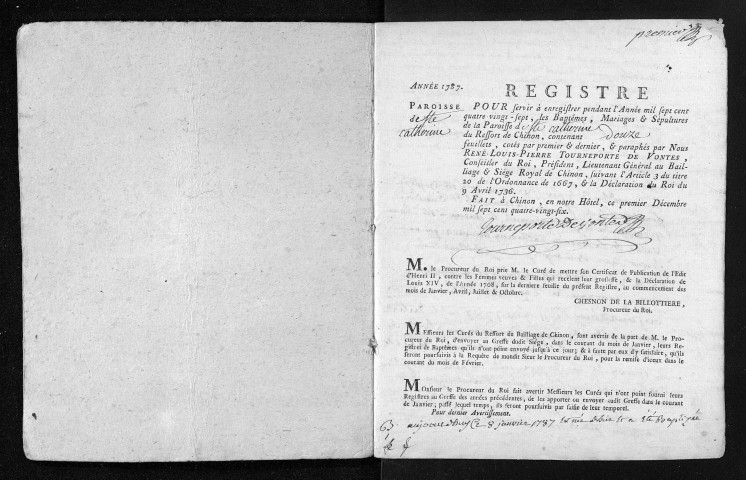 premier
ANNÉE 1787.
REGISTRE
PAROISSE
de Ste
catherine
POUR servir à enregistrer pendant l'Année mil sept cent
quatre-vingt-sept, les Baptêmes, Mariages & Sépultures
de la Paroisse de Ste catherine
du Ressort de Chinon, contenant douze
feuillets, cotés par premier & dernier, & paraphés par Nous
RENÉ-LOUIS-PIERRE TOURNEPORTE DE VONTES,
Conseiller du Roi, Président, Lieutenant Général au Bail-
liage & Siège Royal de Chinon, suivant l'Article 3 du titre
20 de l'Ordonnance de 1667, & la Déclaration du Roi du
9 Avril 1736.
FAIT à Chinon, en notre Hôtel, ce premier Décembre
mil sept cent quatre-vingt-six.
Tourneporte De Vontes
M. le Procureur du Roi prie M. le Curé de mettre son Certificat de Publication de l'Edit
d'Henri II, contre les Femmes veuves & Filles qui recelent leur grossesse, & la Déclaration de
Louis XIV, de l'Année 1708, sur la derniere feuille du présent Registre, au commencement des
mois de Janvier, Avril, Juillet & Octobre.
CHESNON DE LA BILLOTTIERE,
Procureur du Roi.
Messieurs les Curés du Ressort du Bailliage de Chinon, sont avertis de la part de M. le Pro-
cureur du Roi, d'envoyer au Greffe dudit Siège, dans le courant du mois de Janvier, leurs Re-
gistres de Baptêmes qu'ils n'ont point envoyé jusqu'à ce jour; & à faute par eux d'y satisfaire, qu'ils
seront poursuivis à la Requête de mondit Sieur le Procureur du Roi, pour la remise d'iceux dans le
courant du mois de Février.
Monsieur le Procureur du Roi fait avertir Messieurs les Curés qui n'ont point fourni leurs
Registres au Greffe des années précédentes, de les apporter ou envoyer audit Greffe dans le courant
de Janvier; passé lequel temps, ils seront poursuivis par saisie de leur temporel.
Pour dernier Avertissement.
B aujourd'huy Ce 8 janvier 1787 est née a été Baptisée